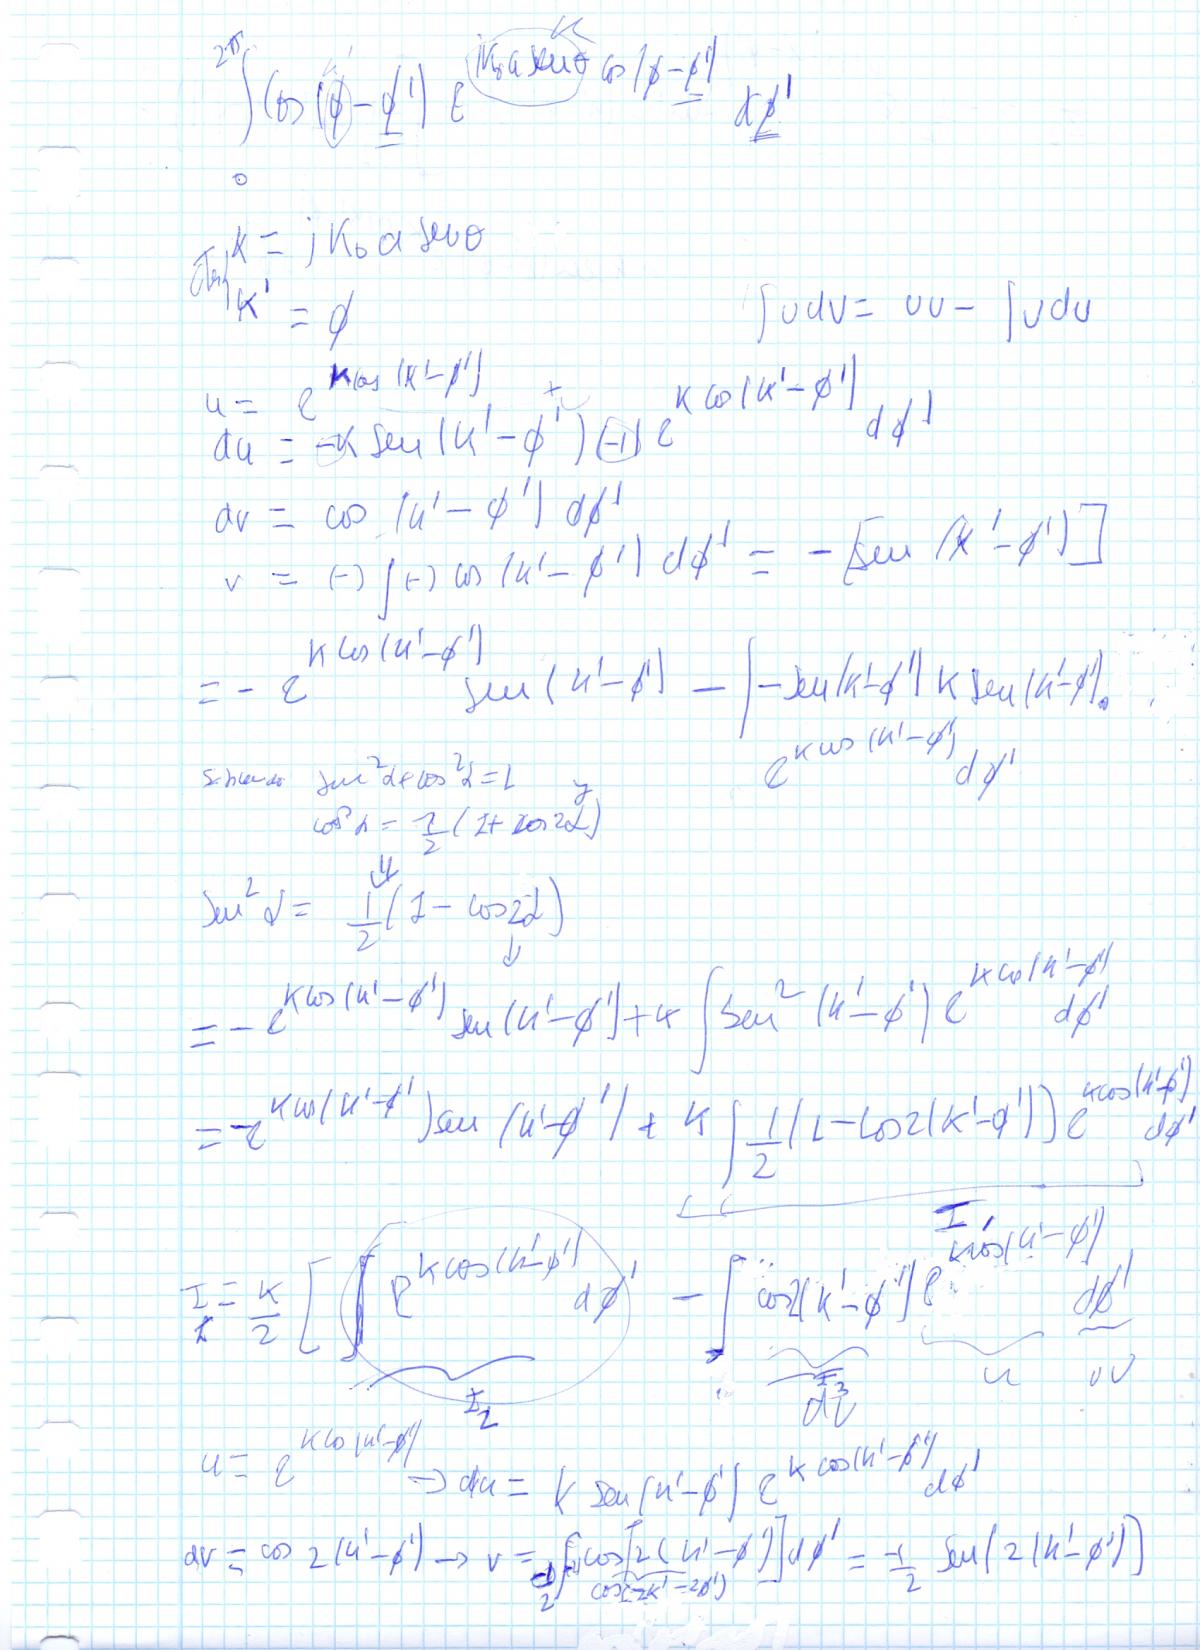 ∫₀^2π cos(φ-φ') e^(jK₀a senθ cos(φ-φ')) dφ'
K = jK₀ a senθ
K' = φ
∫udv = uv - ∫vdu
u = e^(K cos(K'-φ'))
du = -K sen(K'-φ')(-1) e^(K cos(K'-φ')) dφ'
dv = cos(K'-φ') dφ'
v = (-)∫(-) cos(K'-φ') dφ' = -[sen(K'-φ')]
= -e^(K cos(K'-φ')) sen(K'-φ') - ∫-sen(K'-φ') K sen(K'-φ').
e^(K cos(K'-φ')) dφ'
sen²α+cos²α=1 y
cos²α = 1/2 (1+cos2α)
⇓
sen²α = 1/2 (1-cos2α)
↓
= -e^(K cos(K'-φ')) sen(K'-φ') + K ∫sen²(K'-φ') e^(K cos(K'-φ')) dφ'
= -e^(K cos(K'-φ')) sen(K'-φ') + K ∫1/2 (1-cos2(K'-φ')) e^(K cos(K'-φ')) dφ'
I₁
I₁ = K/2 [∫e^(K cos(K'-φ')) dφ' - ∫cos2(K'-φ') e^(K cos(K'-φ')) dφ'
I₂ I₃ u
dv
u = e^(K cos(K'-φ')) → du = K sen(K'-φ') e^(K cos(K'-φ')) dφ'
dv = cos2(K'-φ') → v = -1/2 ∫(-2)cos[2(K'-φ')]dφ' = -1/2 sen(2(K'-φ'))
cos(2K'-2φ')